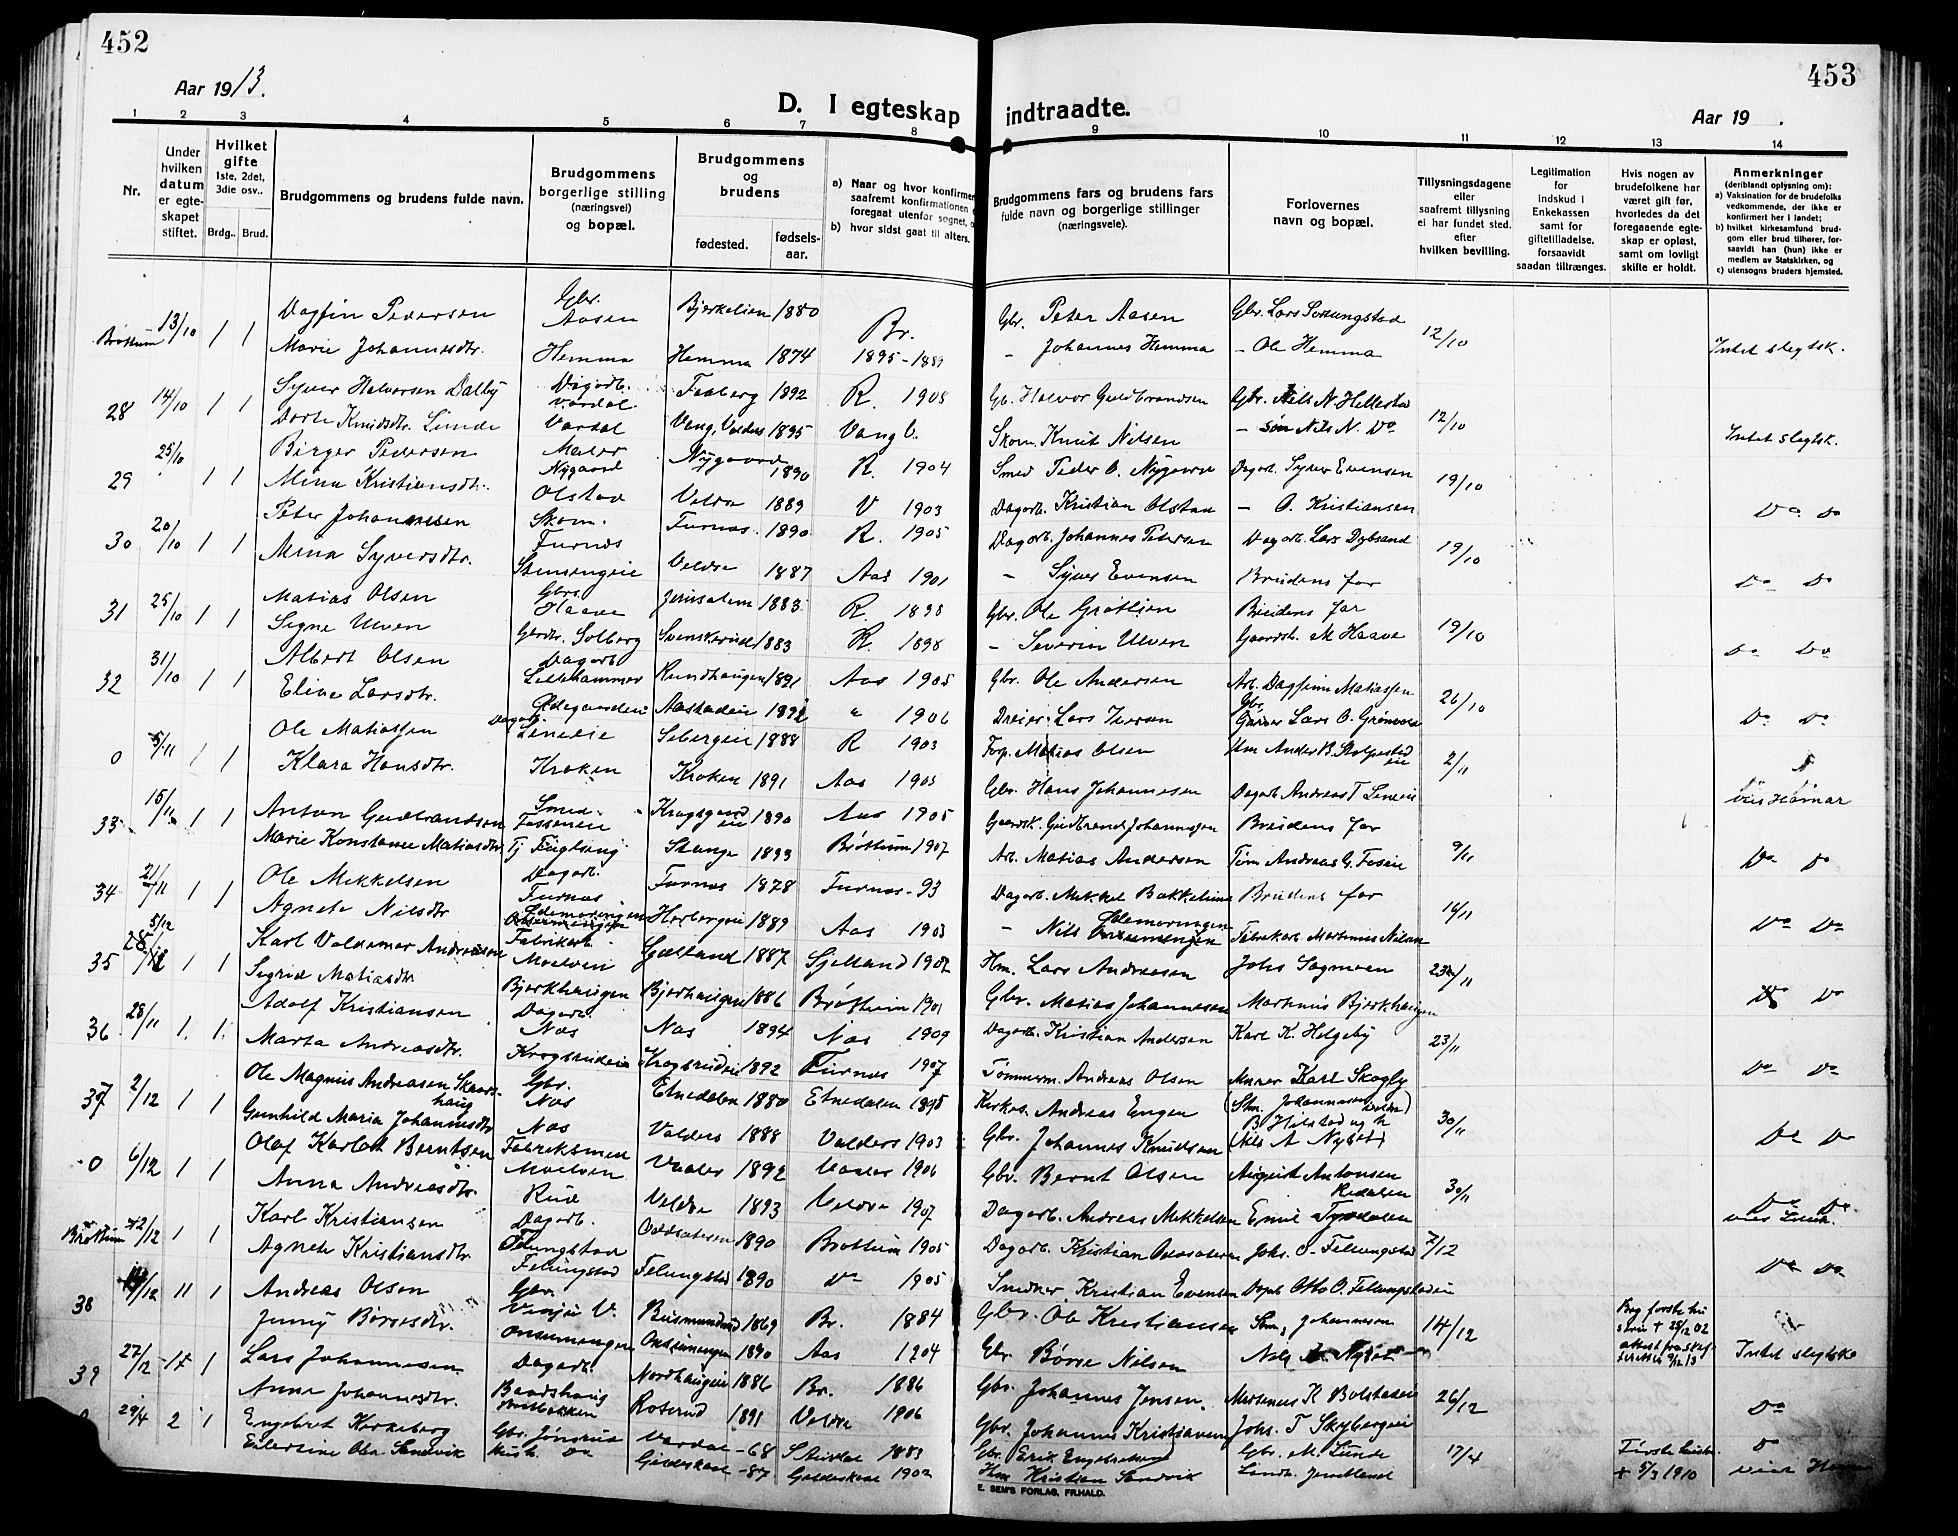 452
Aar 1913.
D. I egteskap
1 2 3 4 5 6 7 8
Nr.
Under hvilken datum er egteskapet stiftet.
Hvilket gifte 1ste, 2det, 3die osv..
Brdg.. Brud.
Brudgommens og brudens fulde navn.
Brudgommens borgerlige stilling (næringsvei) og bopæl.
Brudgommens og brudens
fødested. fødsels-aar.
a) Naar og hvor konfirmer
saafremt konfirmationen
foregaat utenfor sognet,
b) hvor sidst gaat til alters.
Brøttum 13/10 1 1 Dagfin Pedersen Gbr. Aasen Bjerkelien 1880 Br.
Marie Johannesdtr. Hemma Hemma 1874 1895-1889
28 14/10 1 1 Syver Halvorsen Dalby Dagarb. Vardal Faaberg 1892 R. 1908
Dorte Knudsdtr. Linde Vardal Vang, Valdres 1895 Vang V.
29 25/10 1 1 Birger Pedersen Maler Nygaard Nygaard 1890 R. 1904
Mina Kristiansdtr. Olstad Veldre 1889 V 1903
30 20/10 1 1 Peter Johannesen Skom. Furnes Furnes 1890 R. 1905
Mina Syversdtr. Stensengeie Veldre 1887 Aas 1901
31 25/10 1 1 Matias Olsen Gbr. Haave Jerusalem 1883 R. 1898
Signe Ulven Gbrdtr. Solberg Svenskerud 1883 R. 1898
32 31/10 1 1 Albert Olsen Dagarb. Lillehammer Rundhaugen 1891 Aas 1905
Eline Larsdtr. Ødegaardeie Aastadeie 1892 " 1906
0 5/11 1 1 Ole Matiassen Dagarb. Lineie Sebergeie 1888 R 1903
Klara Hansdtr. Kroken Kroken 1891 Aas 1905
33 15/11 1 1 Anton Gudbrandsen Smed Fosseneie Krogsgaard eie 1890 Aas 1905
Marie Konstance Matiasdtr. Tj Fuglseng Stange 1893 Brøttum 1907
34 21/11 1 1 Ole Mikkelsen Dagarb. Furnes Furnes 1878 Furnes-93
Agnete Nilsdtr. Ødemoringen Herbergeie 1889 Aas 1903
35 28/11 1 1 Karl Valdemar Andreasen Fabrikarb. Moelven Sjælland 1887 Sjelland 1902
Sigrid Matiasdtr. Bjerkhaugen Bjerhaugen 1886 Brøttum 1901
36 28/11 1 1 Adolf Kristiansen Dagarb. Næs Næs 1894 Næs 1909
Marta Andreasdtr. Krogsrudeie Krogsrudeie 1892 Furnes 1907
37 2/12 1 1 Ole Magnus Andreasen Skaarshaug Gbr. Næs Etnedalen 1880 Etnedalen 1895
Gunhild Maria Johannesdtr Næs Valdres 1888 Valders 1903
0 6/12 1 1 Olaf Karlot Berntsen Fabriksmed Moelven Vaaler 1892 Vaaler 1906
Anna Andreasdtr. Rud Veldre 1893 Veldre 1907
Brøttum 12/12 1 1 Karl Kristiansen Dagarb. Felungstad Oddsæteren 1890 Brøttum 1905
Agnete Kristiansdtr. Felungstad Felungstad 1890 do 1905
38 19/12 11 1 Andreas Olsen Gbr. Busmundrud 1869 Br. 1884
Jenny Børresdtr. Onsumengen Onsumengen 1890 Aas 1904
39 27/12 1 1 Lars Johannesen Dagarb. Baadshaug Nordhaugeie 1886 Br. 1886
Anne Johannesdtr. Roterud 1891 Veldre 1906
29/4 2 1 Engebret Kirkeberg Gbr. Jøngrud Vardal -68 S. Aurdal 1883
Eilertine Ola Sandvik Hush. Do Gildeskaal -87 Gildeskaal 1902
453
indtraadte.
Aar 19 .
9 10 11 12 13 14
Brudgommens fars og brudens fars
fulde navn og borgerlige stillinger
(næringsveie).
Forlovernes
navn og bopæl.
Tillysningsdagene
eller
saafremt tillysning
ei har fundet sted.
efter
hvilken bevilling.
Legitimation
for
indskud i
Enkekassen
samt for
giftetilladelse,
forsaavidt
saadan tiltrænges.
Hvis nogen av
brudefolkene har
været gift før,
hvorledes da det
foregaaende egte-
skap er opløst,
samt om lovligt
skifte er holdt.
Anmerkninger
(deriblandt oplysning om):
a) Vaksination for de brudefolks
vedkommende, der ikke er
konfirmert her i landet;
b) hvilket kirkesamfund brud-
gom eller brud tilhører, for-
saavidt han (hun) ikke er
medlem av Statskirken, og
c) utensogns bruders hjemsted.
Gbr. Peter Aasen Gbr. Lars Sveungstad 12/10
- Johannes Hemma - Ole Hemma Intet slegtsk.
Gb. Halvor Guldbrandsen Gbr. Nils N. Hellestad 12/10
Skom. Knut Nilsen - søn Nils N. Do Intet slegtsk.
Smed Peder O. Nygaard Dagarb. Syver Evensen 19/10
Dagarb. Kristian Olstad - O. Kristiansen Do Do
Dagarb. Johannes Petersen Dagarb. Lars Dybsand 19/10
- Syver Evensen Brudens far Do Do
Gbr. Ole Grøtlien Brudens far 19/10
- Severin Ulven Gaardbr. M Haave Do Do
Gbr. Ole Andersen Arb. Dagfinn Matiassen 26/10
Dreier Lars Iversen Gbr. Lars O. Grønvold Do Do
Forp. Matias Olsen Hm Anders B. Stolpestad eie 2/11
Gbr. Hans Johannesen Dagarb Andreas T Lineie viet Hamar
Gaardsk. Gudbrand Johannesen Brudens far 9/11
Arb. Matias Andersen Tøm Andreas G. Foseie Do Do
Dagarb. Mikkel Bakkelund Brudens far 14/11
- Nils Ødemoringen Fabrikarb. Martinus Nilsen Do Do
Hm. Lars Andreasen Johs Sagmoen 23/11
Gbr. Matias Johannesen Martinus Bjerkhaugen Do Do
Dagarb. Kristian Andersen Karl K. Helgeby 23/11
Tømmerm. Andreas Olsen Murer Karl Skogly Do Do
Kirkes. Andreas Engen (Stm. Johannesen 30/11
Gbr. Johannes Knudsen Nils A Nybot) Do Do
Gbr. Bernt Olsen August Antonsen Redalen 30/11
Dagarb. Andreas Mikkelsen Emil Tyrdalen Do Do
Dagarb. Kristian Oddsæteren Johs. O. Felungstad 7/12
Snedker Kristian Evensen Dagarb Otto O. Felungstadeie Do Do
Gbr. Ole Kristiansen Stm, Johannesen 14/12 Brg første hustru + 25/12 02
Gbr. Børre Nilsen Nils A Nybot Intet slegtsk
Gbr. Johannes Jensen. Martinus K Bolstadeie 26/12
Gbr. Johannes Kristiansen Johs. T Skybergeie Do
Gbr. Erik Engebretsen Gbr. M. Lunde 17/4 Første hustr. + 5/3 1910
Hm Kristian Sandvik viet
E. SEM'S FORLAG, FR.HALD.